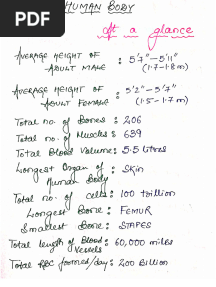 PDF
HUMAN BODY
At a glance
AVERAGE HEIGHT OF : 5'7" - 5'11"
ADULT MALE (1.7-1.8m)
AVERAGE HEIGHT OF : 5'2" - 5'7"
ADULT FEMALE (1.5-1.7m)
Total no. of Bones : 206
Total no. of Muscles : 639
Total Blood Volume : 5.5 Litres
Longest Organ of : Skin
Human Body
Total no. of Cells : 100 trillion
Longest Bone : FEMUR
Smallest Bone : STAPES
Total length of Blood : 60,000 miles
Vessels
Total RBC formed/day : 200 Billion